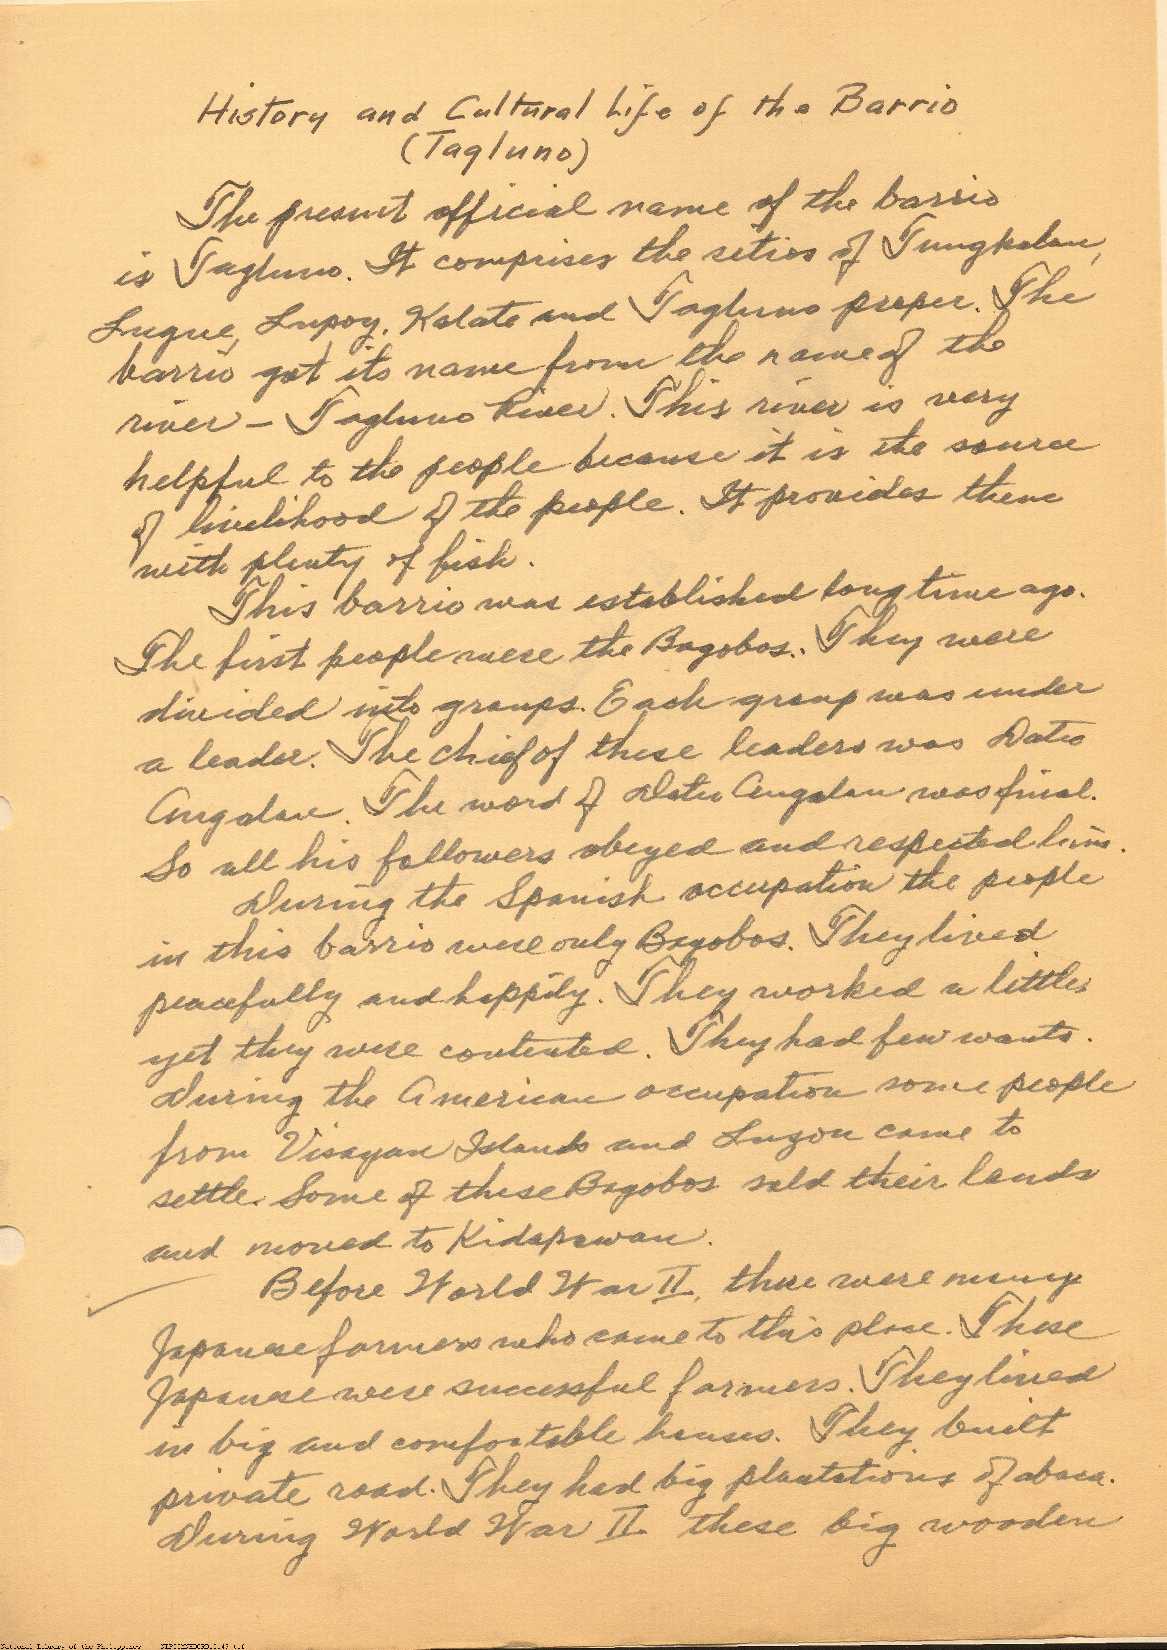 History and Cultural Life of the Barrio
(Tagluno)
The present official name of the barrio
is Tagluno. It comprises the sitios of Tungkalan,
Lugue, Lupoy, Kalate and Tagluno proper. The
barrio got its name from the name of the
river - Tagluno River. This river is very
helpful to the people because it is the source
of livelihood of the people. It provides them
with plenty of fish.
This barrio was established long time ago.
The first people were the Bagobos. They were
divided into groups. Each group was under
a leader. The chief of these leaders was Datu
Angalan. The word of Datu Angalan was final.
So all his followers obeyed and respected him.
During the Spanish occupation the people
in this barrio were only Bagobos. They lived
peacefully and happily. They worked a little
yet they were contented. They had few wants.
During the American occupation some people
from Visayan Islands and Luzon came to
settle. Some of these Bagobos sold their lands
and moved to Kidapawan.
Before World War II, there were many
Japanese farmers who came to this place. These
Japanese were successful farmers. They lived
in big and comfortable houses. They built
private road. They had big plantations of abaca.
During World War II these big wooden
National Library of the Philippines